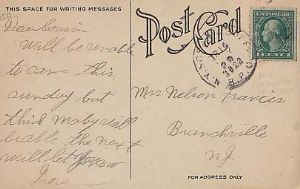 THIS SPACE FOR WRITING MESSAGES
Post Card
Dear Cousin
Will be unable
to come this
sunday but
think maby will
be able the next
will let know
Mrs Nelson Francis
Branchville
NJ
FOR ADDRESS ONLY